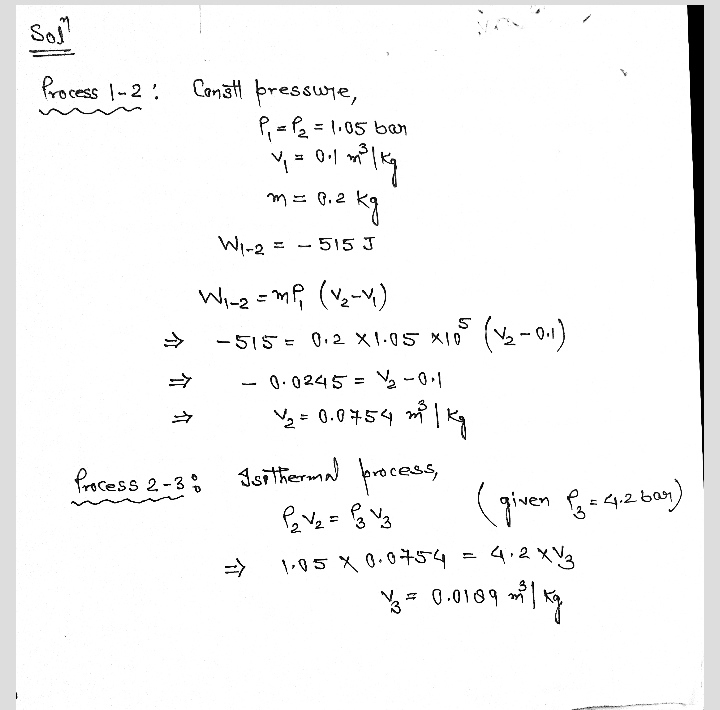 Solⁿ
Process 1-2 : Constt pressure,
P₁ = P₂ = 1.05 bar
v₁ = 0.1 m³/kg
m = 0.2 kg
W₁₋₂ = - 515 J
W₁₋₂ = mP₁ (v₂-v₁)
⇒ -515 = 0.2 × 1.05 × 10⁵ (v₂ - 0.1)
⇒ - 0.0245 = v₂ - 0.1
⇒ v₂ = 0.0754 m³/kg
Process 2-3 : Isothermal process,
P₂v₂ = P₃v₃ (given P₃ = 4.2 bar)
⇒ 1.05 × 0.0754 = 4.2 × v₃
v₃ = 0.0189 m³/kg